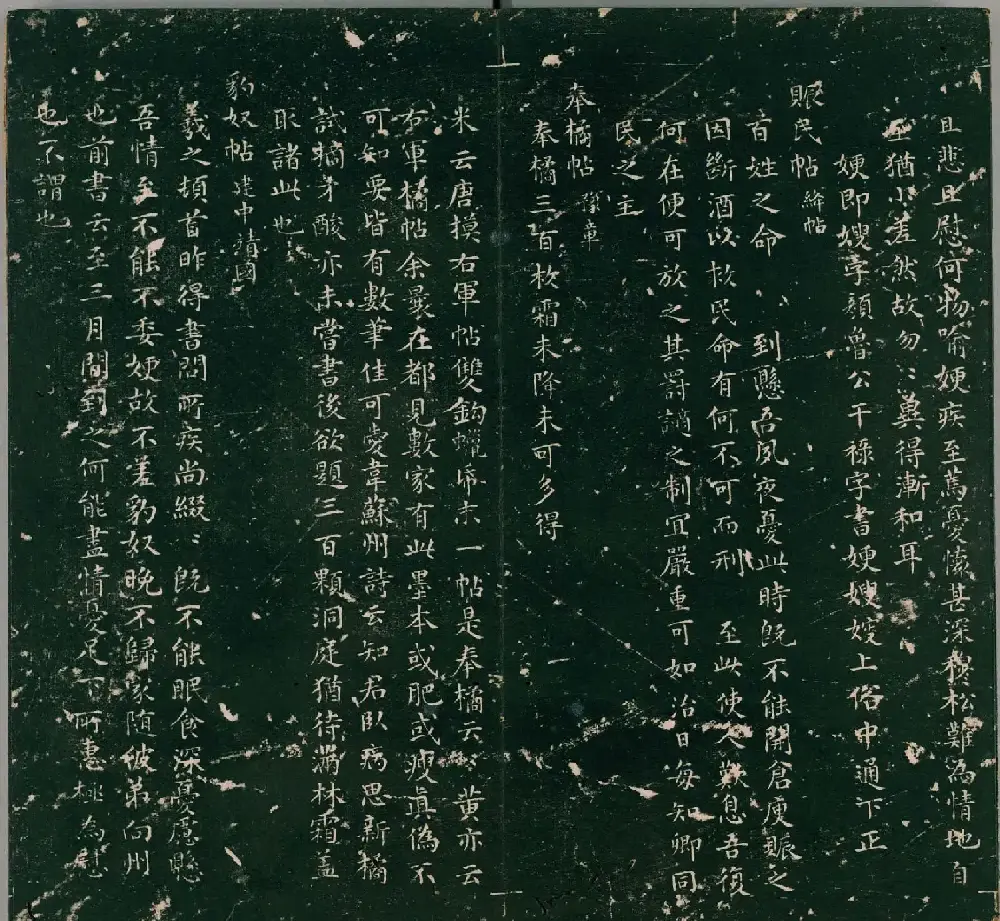 且悲且慰何物喻㛐疾至篤憂懷甚深穆松難為情地自
猶小差然故勿〻冀得漸和耳
㛐即嫂字顏魯公干祿字書㛐嫂㛮上俗中通下正
賑民帖 絳帖
百姓之命 到懸吾夙夜憂此時既不能開倉庾賑之
因斷酒以救民命有何不可而刑 至此使人歎息吾復
何在便可放之其罰謫之制宜嚴重可如治日每知卿同
民之主
奉橘帖 豫章
奉橘三百枚霜未降未可多得 一
米云唐摸右軍帖雙鉤蠟帋末一帖是奉橘云〻黃亦云
右軍橘帖余曩在都見數家有此墨本或肥或瘦真偽不
可知要皆有數筆佳可愛韋蘇州詩云知君臥病思新橘
試摘才酸亦未嘗書後欲題三百顆洞庭猶待滿林霜蓋
取諸此也
豹奴帖 建中靖國
羲之頓首昨得書問所疾尚綴〻既不能眠食深憂慮懸
吾情至不能不委㛐故不差豹奴晚不歸家隨彼弟向州
也前書云至三月間到之何能盡情憂足下所惠極為慰
也不謂也